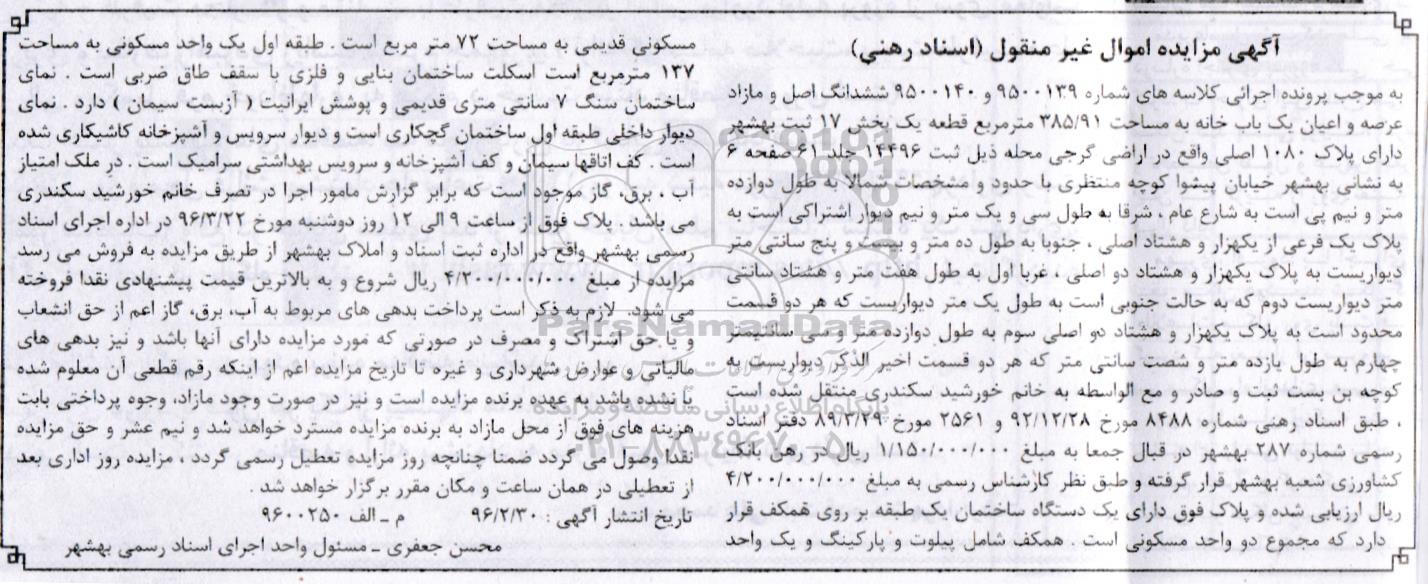 آگهی مزایده اموال غیر منقول (اسناد رهنی)
به موجب پرونده اجرائی کلاسه های شماره ۹۵۰۰۱۳۹ و ۹۵۰۰۱۴۰ ششدانگ اصل و مازاد
عرصه و اعیان یک باب خانه به مساحت ۳۸۵/۹۱ مترمربع قطعه یک بخش ۱۷ ثبت بهشهر
دارای پلاک ۱۰۸۰ اصلی واقع در اراضی گرجی محله ذیل ثبت ۱۴۴۹۶ جلد ۶۱ صفحه ۶
به نشانی بهشهر خیابان پیشوا کوچه منتظری با حدود و مشخصات شمالا به طول دوازده
متر و نیم پی است به شارع عام ، شرقا به طول سی و یک متر و نیم دیوار اشتراکی است به
پلاک یک فرعی از یکهزار و هشتاد اصلی ، جنوبا به طول ده متر و بیست و پنج سانتی متر
دیواریست به پلاک یکهزار و هشتاد دو اصلی ، غربا اول به طول هفت متر و هشتاد سانتی
متر دیواریست دوم که به حالت جنوبی است به طول یک متر دیواریست که هر دو قسمت
محدود است به پلاک یکهزار و هشتاد دو اصلی سوم به طول دوازده متر و سی سانتیمتر
چهارم به طول یازده متر و شصت سانتی متر که هر دو قسمت اخیر الذکر دیواریست به
کوچه بن بست ثبت و صادر و مع الواسطه به خانم خورشید سکندری منتقل شده است
، طبق اسناد رهنی شماره ۸۴۸۸ مورخ ۹۲/۱۲/۲۸ و ۲۵۶۱ مورخ ۸۹/۳/۲۹ دفتر اسناد
رسمی شماره ۲۸۷ بهشهر در قبال جمعا به مبلغ ۱/۱۵۰/۰۰۰/۰۰۰ ریال در رهن بانک
کشاورزی شعبه بهشهر قرار گرفته و طبق نظر کارشناس رسمی به مبلغ ۴/۲۰۰/۰۰۰/۰۰۰
ریال ارزیابی شده و پلاک فوق دارای یک دستگاه ساختمان یک طبقه بر روی همکف قرار
دارد که مجموع دو واحد مسکونی است . همکف شامل پیلوت و پارکینگ و یک واحد
مسکونی قدیمی به مساحت ۷۲ متر مربع است . طبقه اول یک واحد مسکونی به مساحت
۱۳۷ مترمربع است اسکلت ساختمان بنایی و فلزی با سقف طاق ضربی است . نمای
ساختمان سنگ ۷ سانتی متری قدیمی و پوشش ایرانیت ( آزبست سیمان ) دارد . نمای
دیوار داخلی طبقه اول ساختمان گچکاری است و دیوار سرویس و آشپزخانه کاشیکاری شده
است . کف اتاقها سیمان و کف آشپزخانه و سرویس بهداشتی سرامیک است . در ملک امتیاز
آب ، برق، گاز موجود است که برابر گزارش مامور اجرا در تصرف خانم خورشید سکندری
می باشد . پلاک فوق از ساعت ۹ الی ۱۲ روز دوشنبه مورخ ۹۶/۳/۲۲ در اداره اجرای اسناد
رسمی بهشهر واقع در اداره ثبت اسناد و املاک بهشهر از طریق مزایده به فروش می رسد
مزایده از مبلغ ۴/۲۰۰/۰۰۰/۰۰۰ ریال شروع و به بالاترین قیمت پیشنهادی نقدا فروخته
می شود. لازم به ذکر است پرداخت بدهی های مربوط به آب، برق، گاز اعم از حق انشعاب
و یا حق اشتراک و مصرف در صورتی که مورد مزایده دارای آنها باشد و نیز بدهی های
مالیاتی و عوارض شهرداری و غیره تا تاریخ مزایده اعم از اینکه رقم قطعی آن معلوم شده
یا نشده باشد به عهده برنده مزایده است و نیز در صورت وجود مازاد، وجوه پرداختی بابت
هزینه های فوق از محل مازاد به برنده مزایده مسترد خواهد شد و نیم عشر و حق مزایده
نقدا وصول می گردد ضمنا چنانچه روز مزایده تعطیل رسمی گردد ، مزایده روز اداری بعد
از تعطیلی در همان ساعت و مکان مقرر برگزار خواهد شد .
تاریخ انتشار آگهی : ۹۶/۲/۳۰ م ـ الف ۹۶۰۰۲۵۰
محسن جعفری ـ مسئول واحد اجرای اسناد رسمی بهشهر
ParsNamadData
پایگاه اطلاع رسانی مناقصه و مزایده
۰۲۱-۸۸۳۴۹۶۷۰-۵